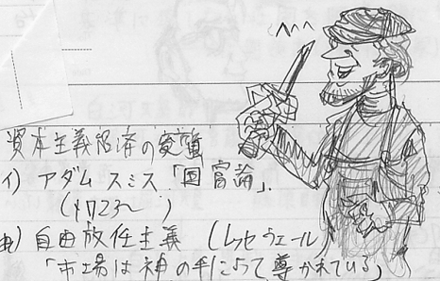 ^^^
資本主義経済の変質
イ) アダム スミス 「国富論」.
(1723~ )
ロ) 自由放任主義 (レッセ フェール)
「市場は神の手によって導かれている」